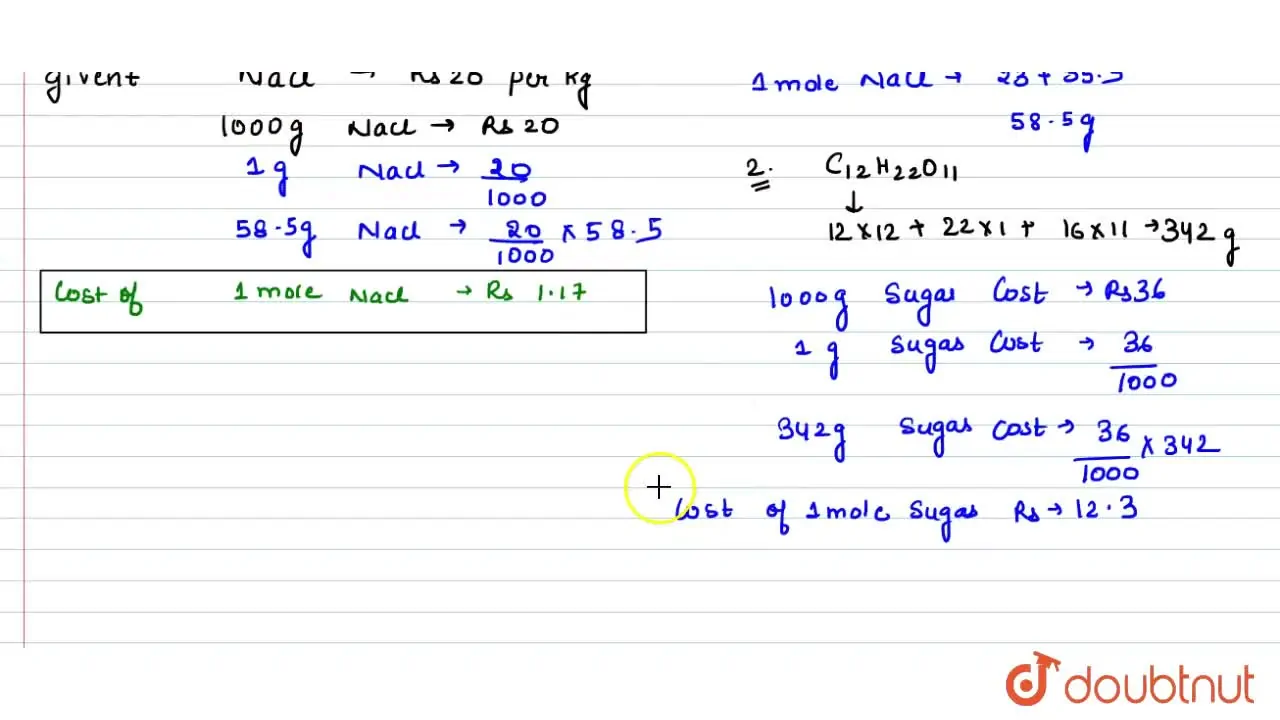 givent NaCl → Rs 20 per kg
1000g NaCl → Rs 20
1g NaCl → 20/1000
58.5g NaCl → 20/1000 × 58.5
Cost of 1 mole NaCl → Rs 1.17
1 mole NaCl → 23 + 35.5
58.5g
2. C12H22O11
↓
12×12 + 22×1 + 16×11 → 342g
1000g Sugar Cost → Rs 36
1g Sugar Cost → 36/1000
342g Sugar Cost → 36/1000 × 342
Cost of 1 mole Sugar Rs → 12.3
doubtnut